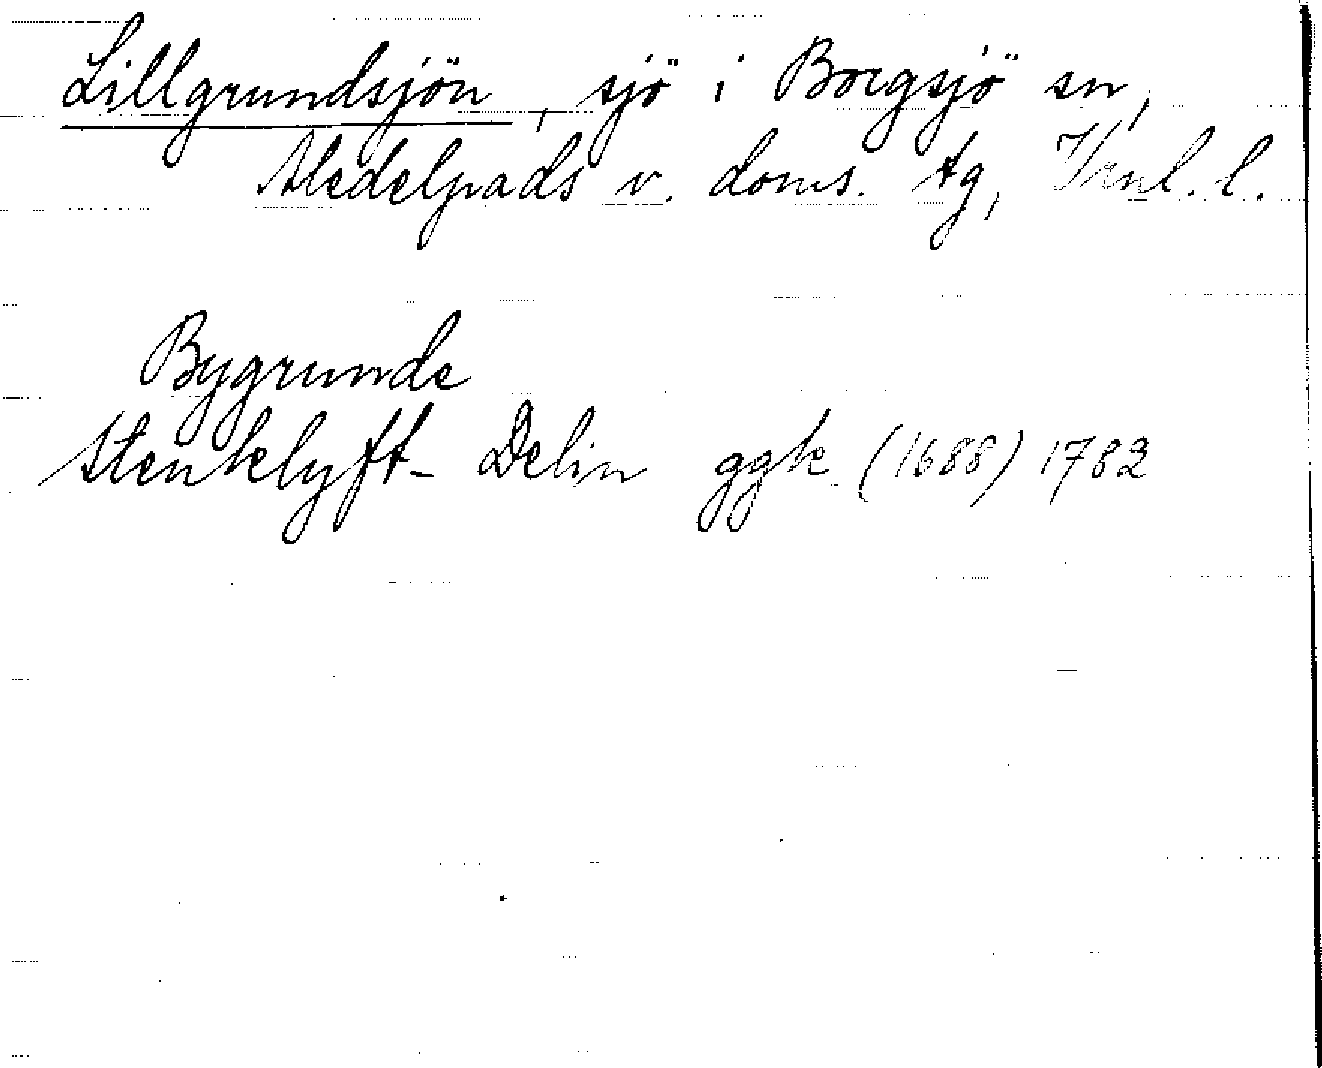 Lillgrundsjön, sjö i Borgsjö sn,
Medelpads v. doms. tg, Vrnl. l.
Bygrunde
Stenklyft- Delin ggk (1688) 1782